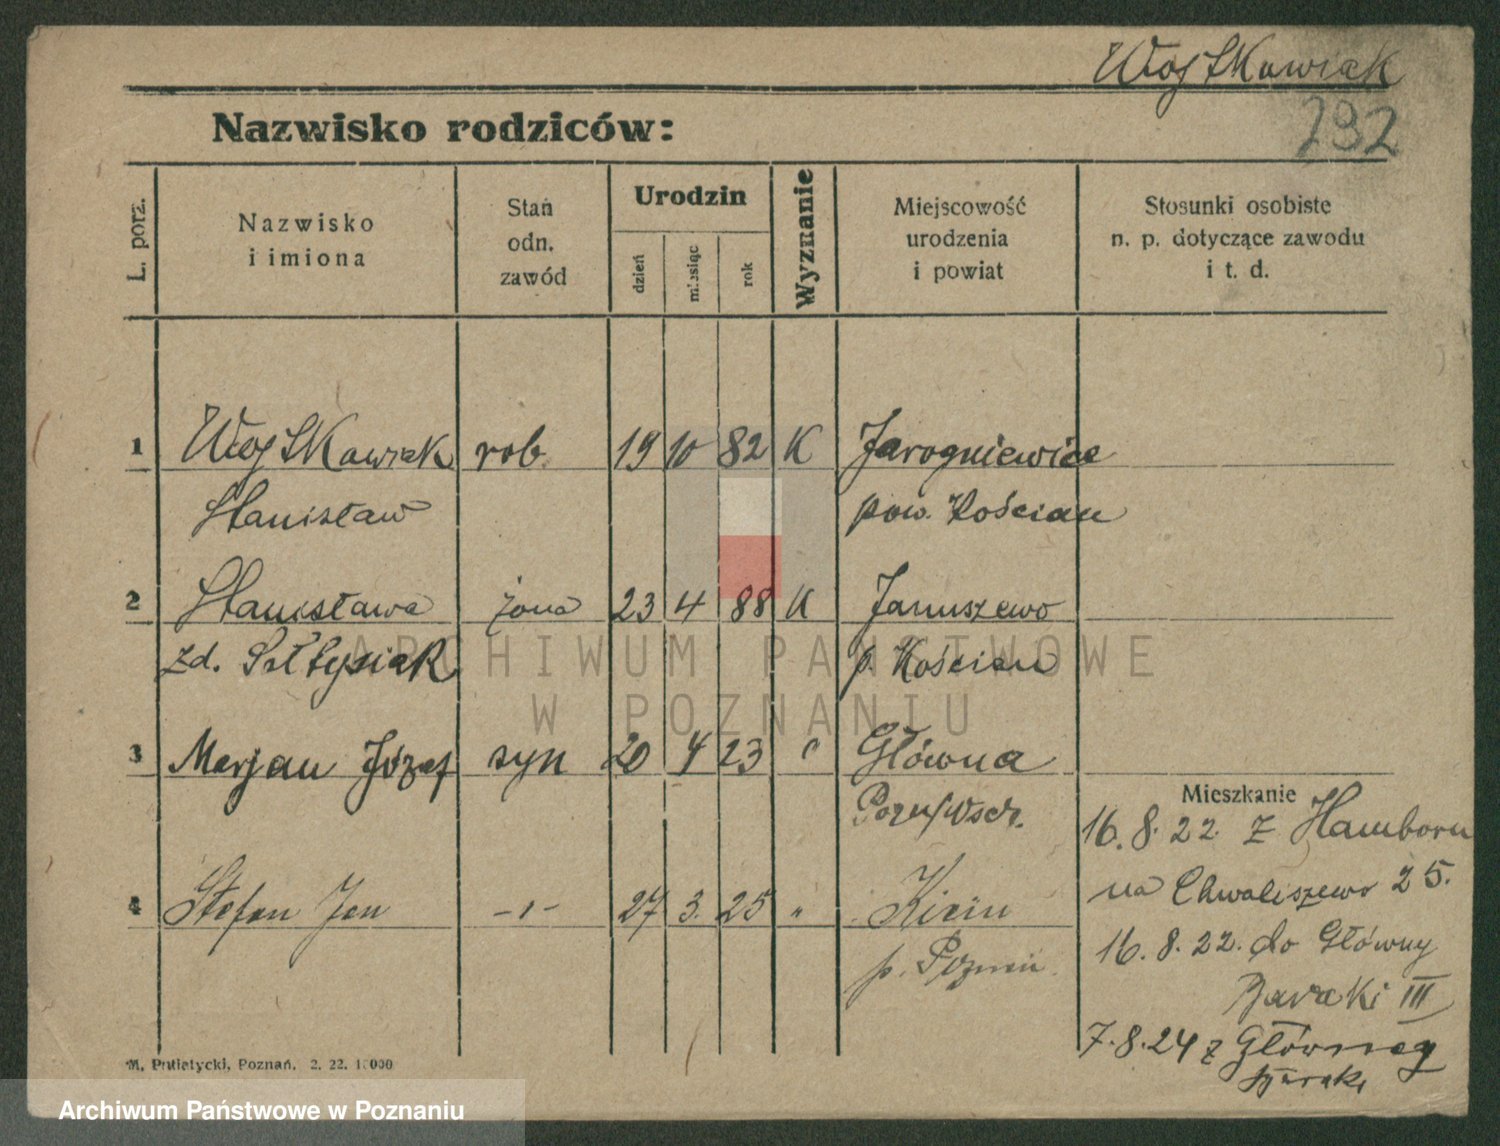 Wojtkowiak
292
Nazwisko rodziców:
L. porz.
Nazwisko
i imiona
Stan
odn.
zawód
Urodzin
dzień
miesiąc
rok
Wyznanie
Miejscowość
urodzenia
i powiat
Stosunki osobiste
n. p. dotyczące zawodu
i t. d.
1 Wojtkowiak rob. 19 10 82 K Jarogniewice
Stanisław pow. Kościan
2 Stanisława żona 23 4 88 K Januszewo
zd. Sołtysiak p. Kościan
ARCHIWUM PAŃSTWOWE
W POZNANIU
3 Marjan Józef syn 20 4 23 " Główna
Pozn/Wsch.
4 Stefan Jan -"- 27 3. 25 " Kicin
p. Poznań
Mieszkanie
16.8.22 z Hamborn
na Chwaliszewo 25.
16.8.22. do Główny
Baraki III
7.8.24 z Głównej
baraki
M. Putiatycki, Poznań. 2. 22. 10000
Archiwum Państwowe w Poznaniu